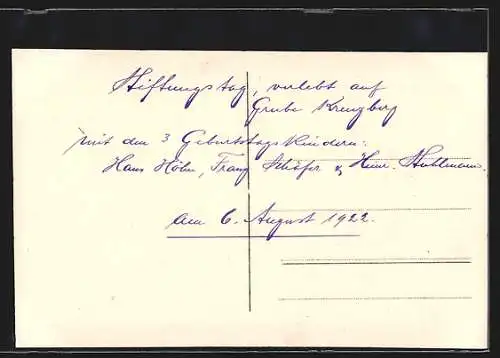 Stiftungstag, verlebt auf
Grube Kreuzberg
mit den 3 Geburtstagskindern:
Hans Höhn, Franz Schäfer & Heinr. Stuhlmann.
am 6. August 1922.